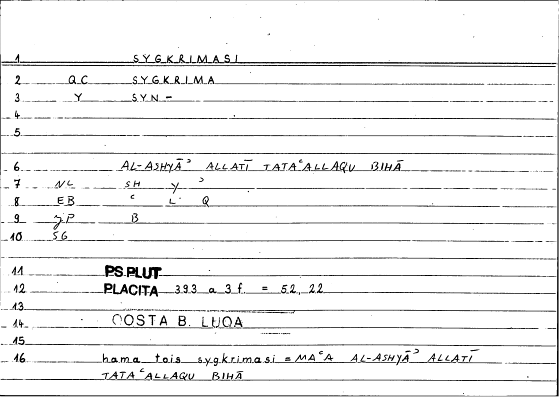 1 SYGKRIMASI
2 QC SYGKRIMA
3 Y SYN-
4
5
6 AL-ASHYĀʾ ALLATĪ TATAʿALLAQU BIHĀ
7 NL SH Y ʾ
8 EB ʿ L Q
9 JP B
10 SG
11 PS PLUT
12 PLACITA 393 a 3 f. = 52, 22
13
14 QOSTA B. LUQA
15
16 hama tois sygkrimasi = MAʿA AL-ASHYĀʾ ALLATĪ
TATAʿALLAQU BIHĀ